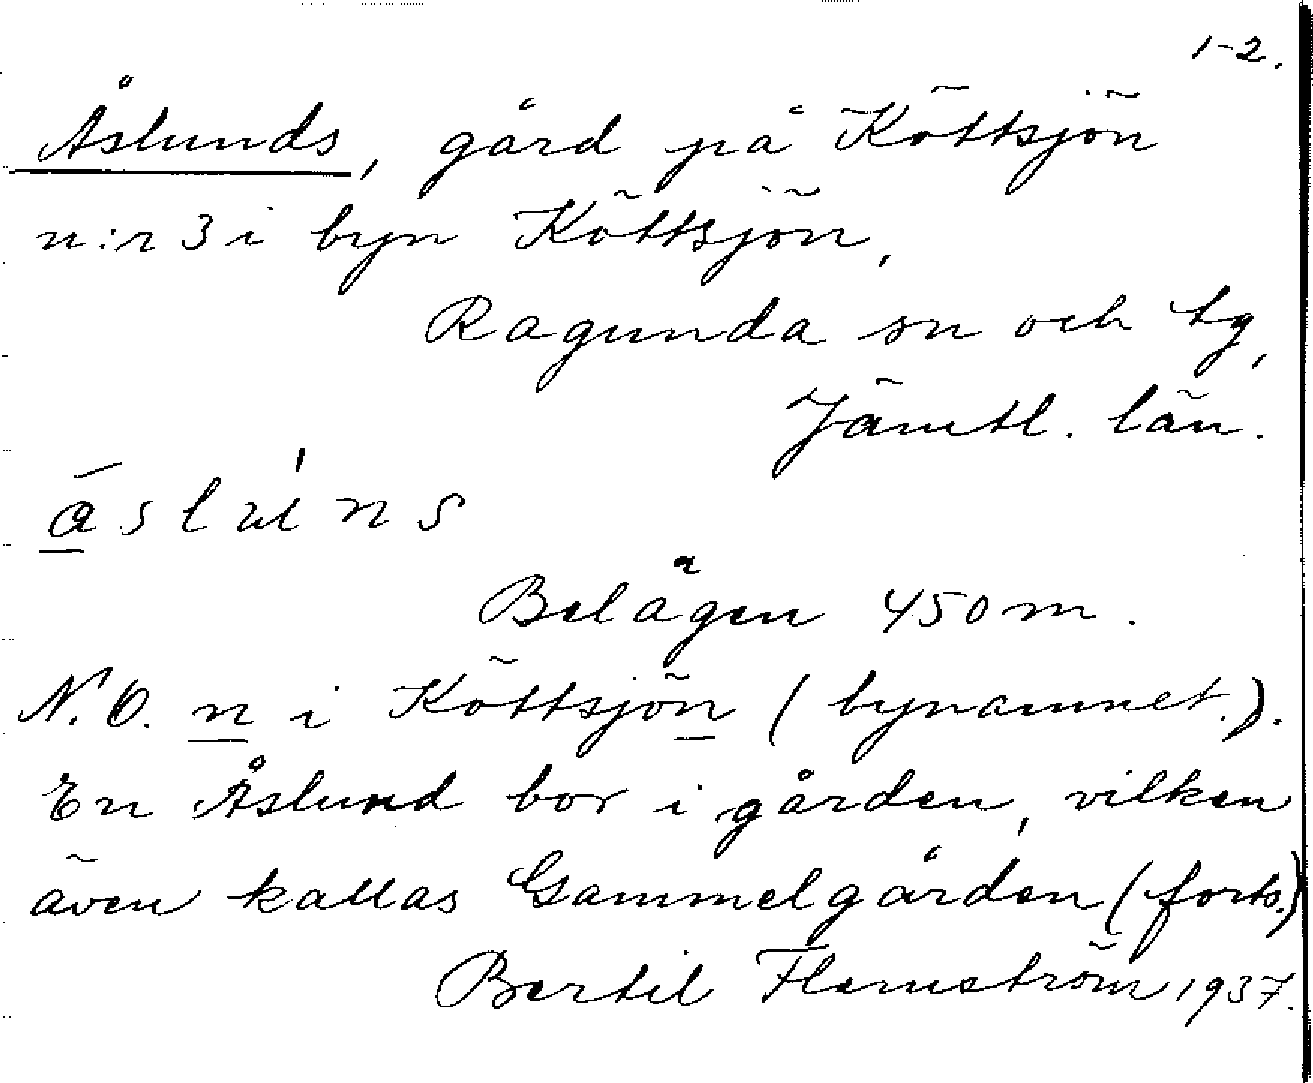 1-2.
Åslunds, gård på Köttsjön
n:r 3 i byn Köttsjön,
Ragunda sn och tg,
Jämtl. län.
á̱slúns
Belägen 450 m.
N.O. n i Köttsjön (bynamnet.).
En Åslund bor i gården, vilken
även kallas Gammelgården (forts.)
Bertil Flemström 1937.